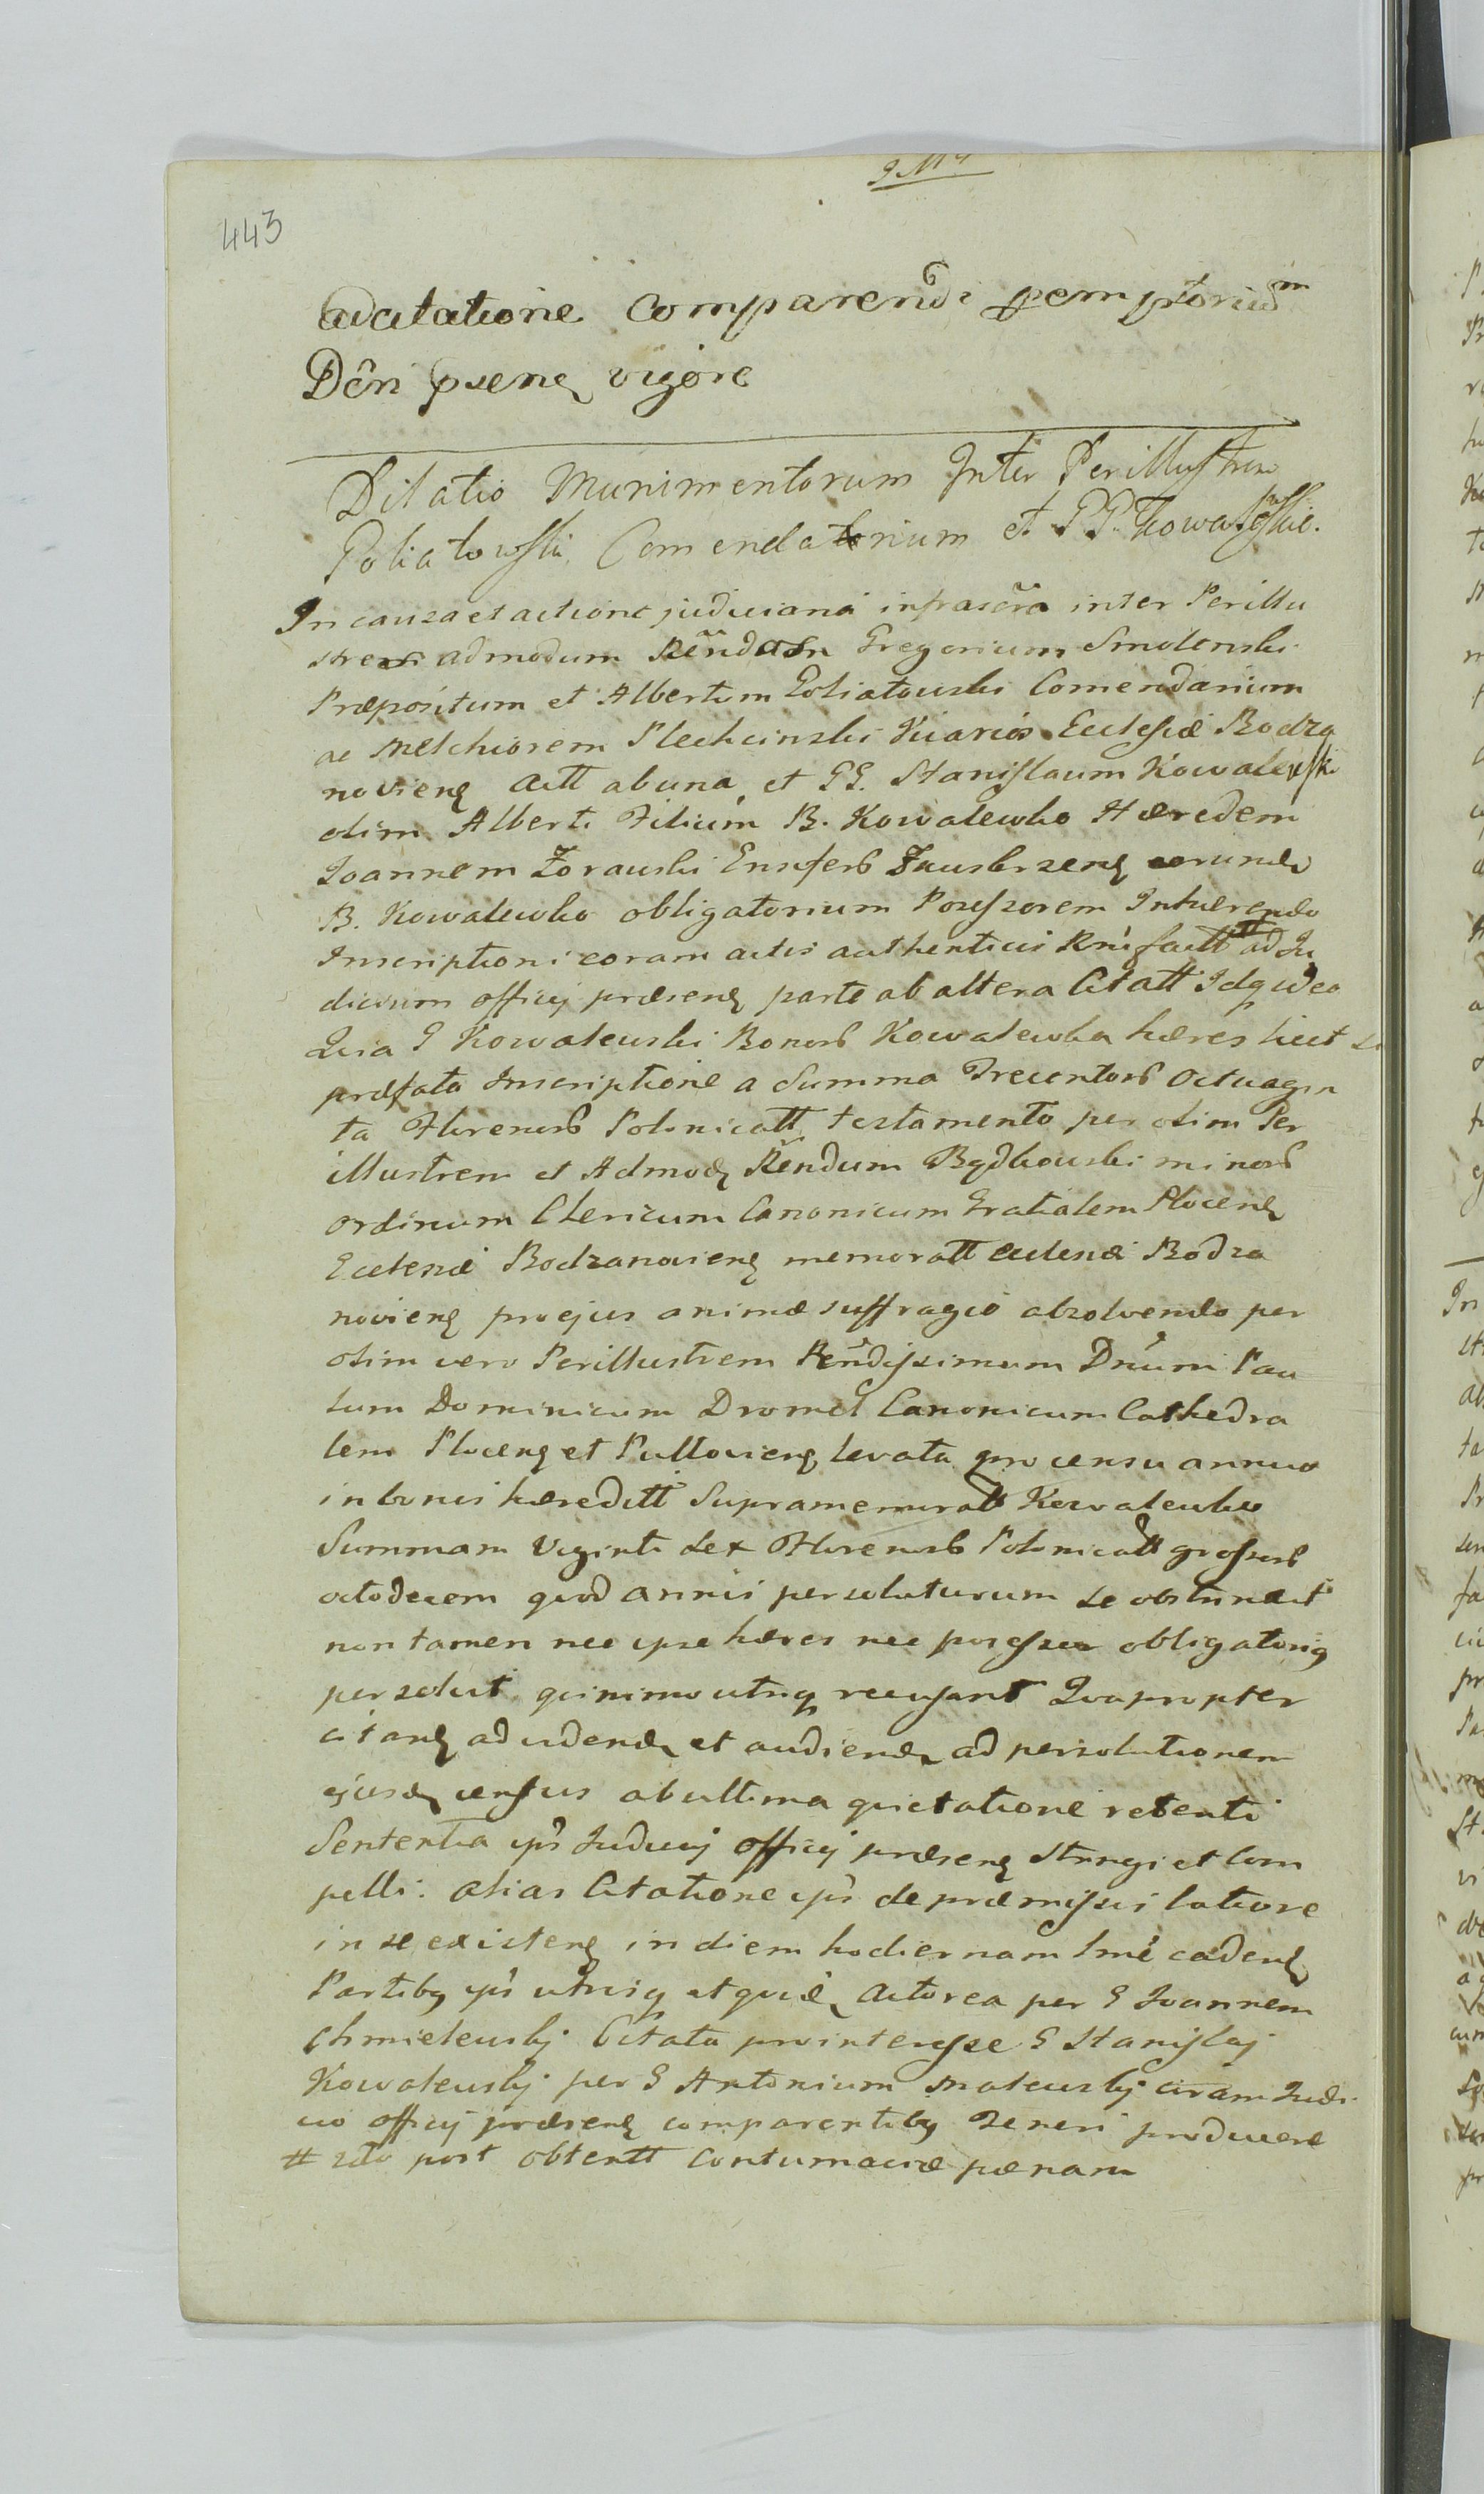 443
adcitatione comparendi peremptorium
Dĉri psenę vigore
Dilatio Munimentorum Inter Perillustrem
Poliatowski Comendatorium et PP. Kowalewskie.
In causa et actione judiciana infrascra inter Perillu
strem admodum Rendum Gregorium Smolenski
Præpositum et Albertum Poliatowski Comendarium
ac Melchiorem Plechcinski Vicarios Ecclesiæ Bodza
novienę Actt ab una, et GG. Stanislaum Kowalewski
olim Alberti Filium B. Kowalewko Hæredem
Joannem Zorawski Ensiferb eorundę
B. Kowalewko obligatorium Possessorem Inhærendo
Inscriptioni coram actis authenticis factt ad Ju
dicium officij præsenę parte ab altera Citatt Idq ideo
Quia G Kowalewski Bonorb Kowalewka hæres licet
præfata Inscriptione a Summa Trecentorb Octuagin
ta Florenorb Polonicatt testamento per olim Per
illustrem et Admodę Rendum Bądkowski minorb
ordinum Clericum Canonicum Gratialem Plocenę
Ecclesiæ Bodzanovienę memoratt ecclesiæ Bodza
novienę pro ejus animæ suffragio absolvendo per
olim vero Perillustrem Rendissimum Dnum Pau
lum Dominicum Dromel Canonicum Cathedra
lem Plocenę et Pultovienę levata pro censu annuo
in bonis hæreditt Supramemoratt Kowalewko
Summam Viginti sex Florenorb Polonicatt grossorb
octodecem quod annis persoluturum se obstrinxit
non tamen nec ipse hæres nec possessor obligatoriq
persolvit quinimo utriq recusant Quapropter
citanę ad videndę et audiendę ad persolutionem
ejusdę census ab ultima quietatione retenti
Sententia ipŝ Judicij officij præsenę stringi et com
pelli. alias Citatione ipŝ de præmissis latiore
in se existenę in diem hodiernam lme cadenę
Partibq ipŝ utrisq Actorea per G Joannem
Chmielewskj Citata pro interesse G Stanislaj
Kowalewskj per G Antonium Malewskj coram Judi
cio officij præsenę comparentibq Teneri producere
# post obtentt contumaciæ pænam